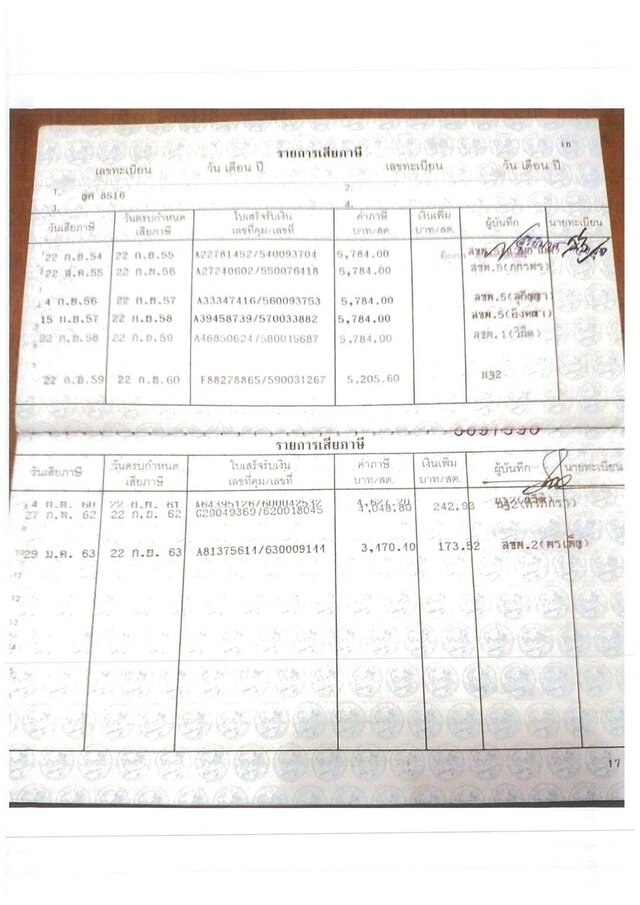 16
รายการเสียภาษี
เลขทะเบียน วัน เดือน ปี เลขทะเบียน วัน เดือน ปี
1. ฮค 8516 2.
3. 4.
วันเสียภาษี วันครบกำหนดเสียภาษี ใบเสร็จรับเงิน เลขที่คุม/เลขที่ ค่าภาษี บาท/สต. เงินเพิ่ม บาท/สต. ผู้บันทึก นายทะเบียน
22 ก.ย.54 22 ก.ย.55 A22781452/540093704 5,784.00
22 ส.ค.55 22 ก.ย.56 A27240602/550076418 5,784.00 ลชพ.5
4 ก.ย.56 22 ก.ย.57 A33347416/560093753 5,784.00 ลชพ.5(สุกัญญา)
15 22 ก.ย.58 A39458739/570033882 5,784.00 ลชพ.5
22 ก.ย.58 22 ก.ย.59 A46850624/580015687 5,784.00 ลชพ.1
22 ก.ย.59 22 ก.ย.60 F88278865/590031267 5,205.60
รายการเสียภาษี
วันเสียภาษี วันครบกำหนดเสียภาษี ใบเสร็จรับเงิน เลขที่คุม/เลขที่ ค่าภาษี บาท/สต. เงินเพิ่ม บาท/สต. ผู้บันทึก นายทะเบียน
4 ก.ย. 60 22 ก.ย. 61 A64395126/600042532 4,627.20
27 ก.พ. 62 22 ก.ย. 62 C29049369/620018045 4,048.80 242.93
29 ม.ค. 63 22 ก.ย. 63 A81375614/630009144 3,470.40 173.52 ลชพ.2(พรเพ็ญ)
17